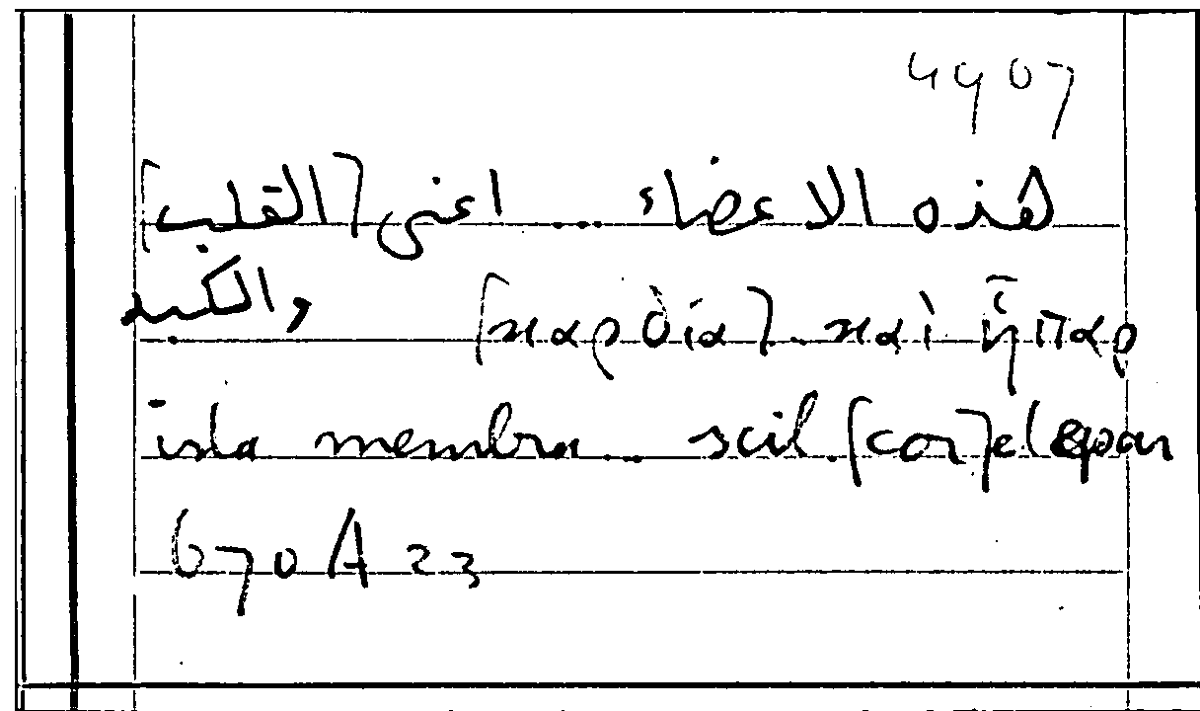 4907
هذه الاعضاء ... اعنى [القلب]
والكبد [καρδία] . καὶ ἧπαρ
ista membra ... scil. [cor] et epar
670 A 23